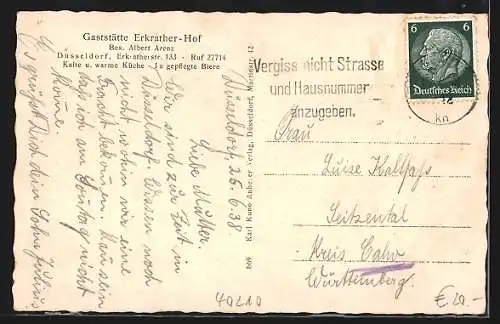 Gaststätte Erkrather-Hof
Bes. Albert Arenz
Düsseldorf, Erkratherstr. 133 - Ruf 27714
Kalte u. warme Küche - Ia gepflegte Biere
Düsseldorf, 25.6.38.
Liebe Mutter.
Wir sind zur Zeit in
Düsseldorf. Wissen noch
nicht wohin wir eine
Fracht bekommen. Kan sein
das ich am Sontag nicht
kome.
Es grüsst Dich dein Sohn Julius
949 Karl Kuno Verlag, Düsseldorf, 12
Vergiss nicht Strasse
und Hausnummer
anzugeben.
6 6
Deutsches Reich
Frau
Luise Kalhfass
Seitzental
Kreis Calw
Württemberg.
40210
€ 20.-